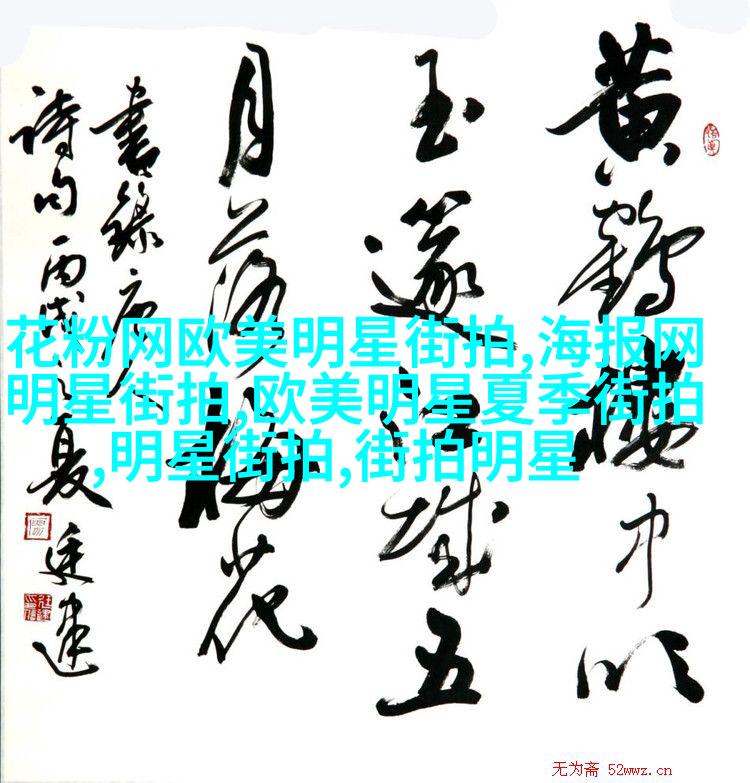 黄鶴樓中吹
玉篴江城五
月落梅花
書錄唐人
诗句丙戌之夏廷建
花粉网欧美明星街拍,海报网
明星街拍,欧美明星夏季街拍
,明星街拍,街拍明星
无为斋 52wwz.cn